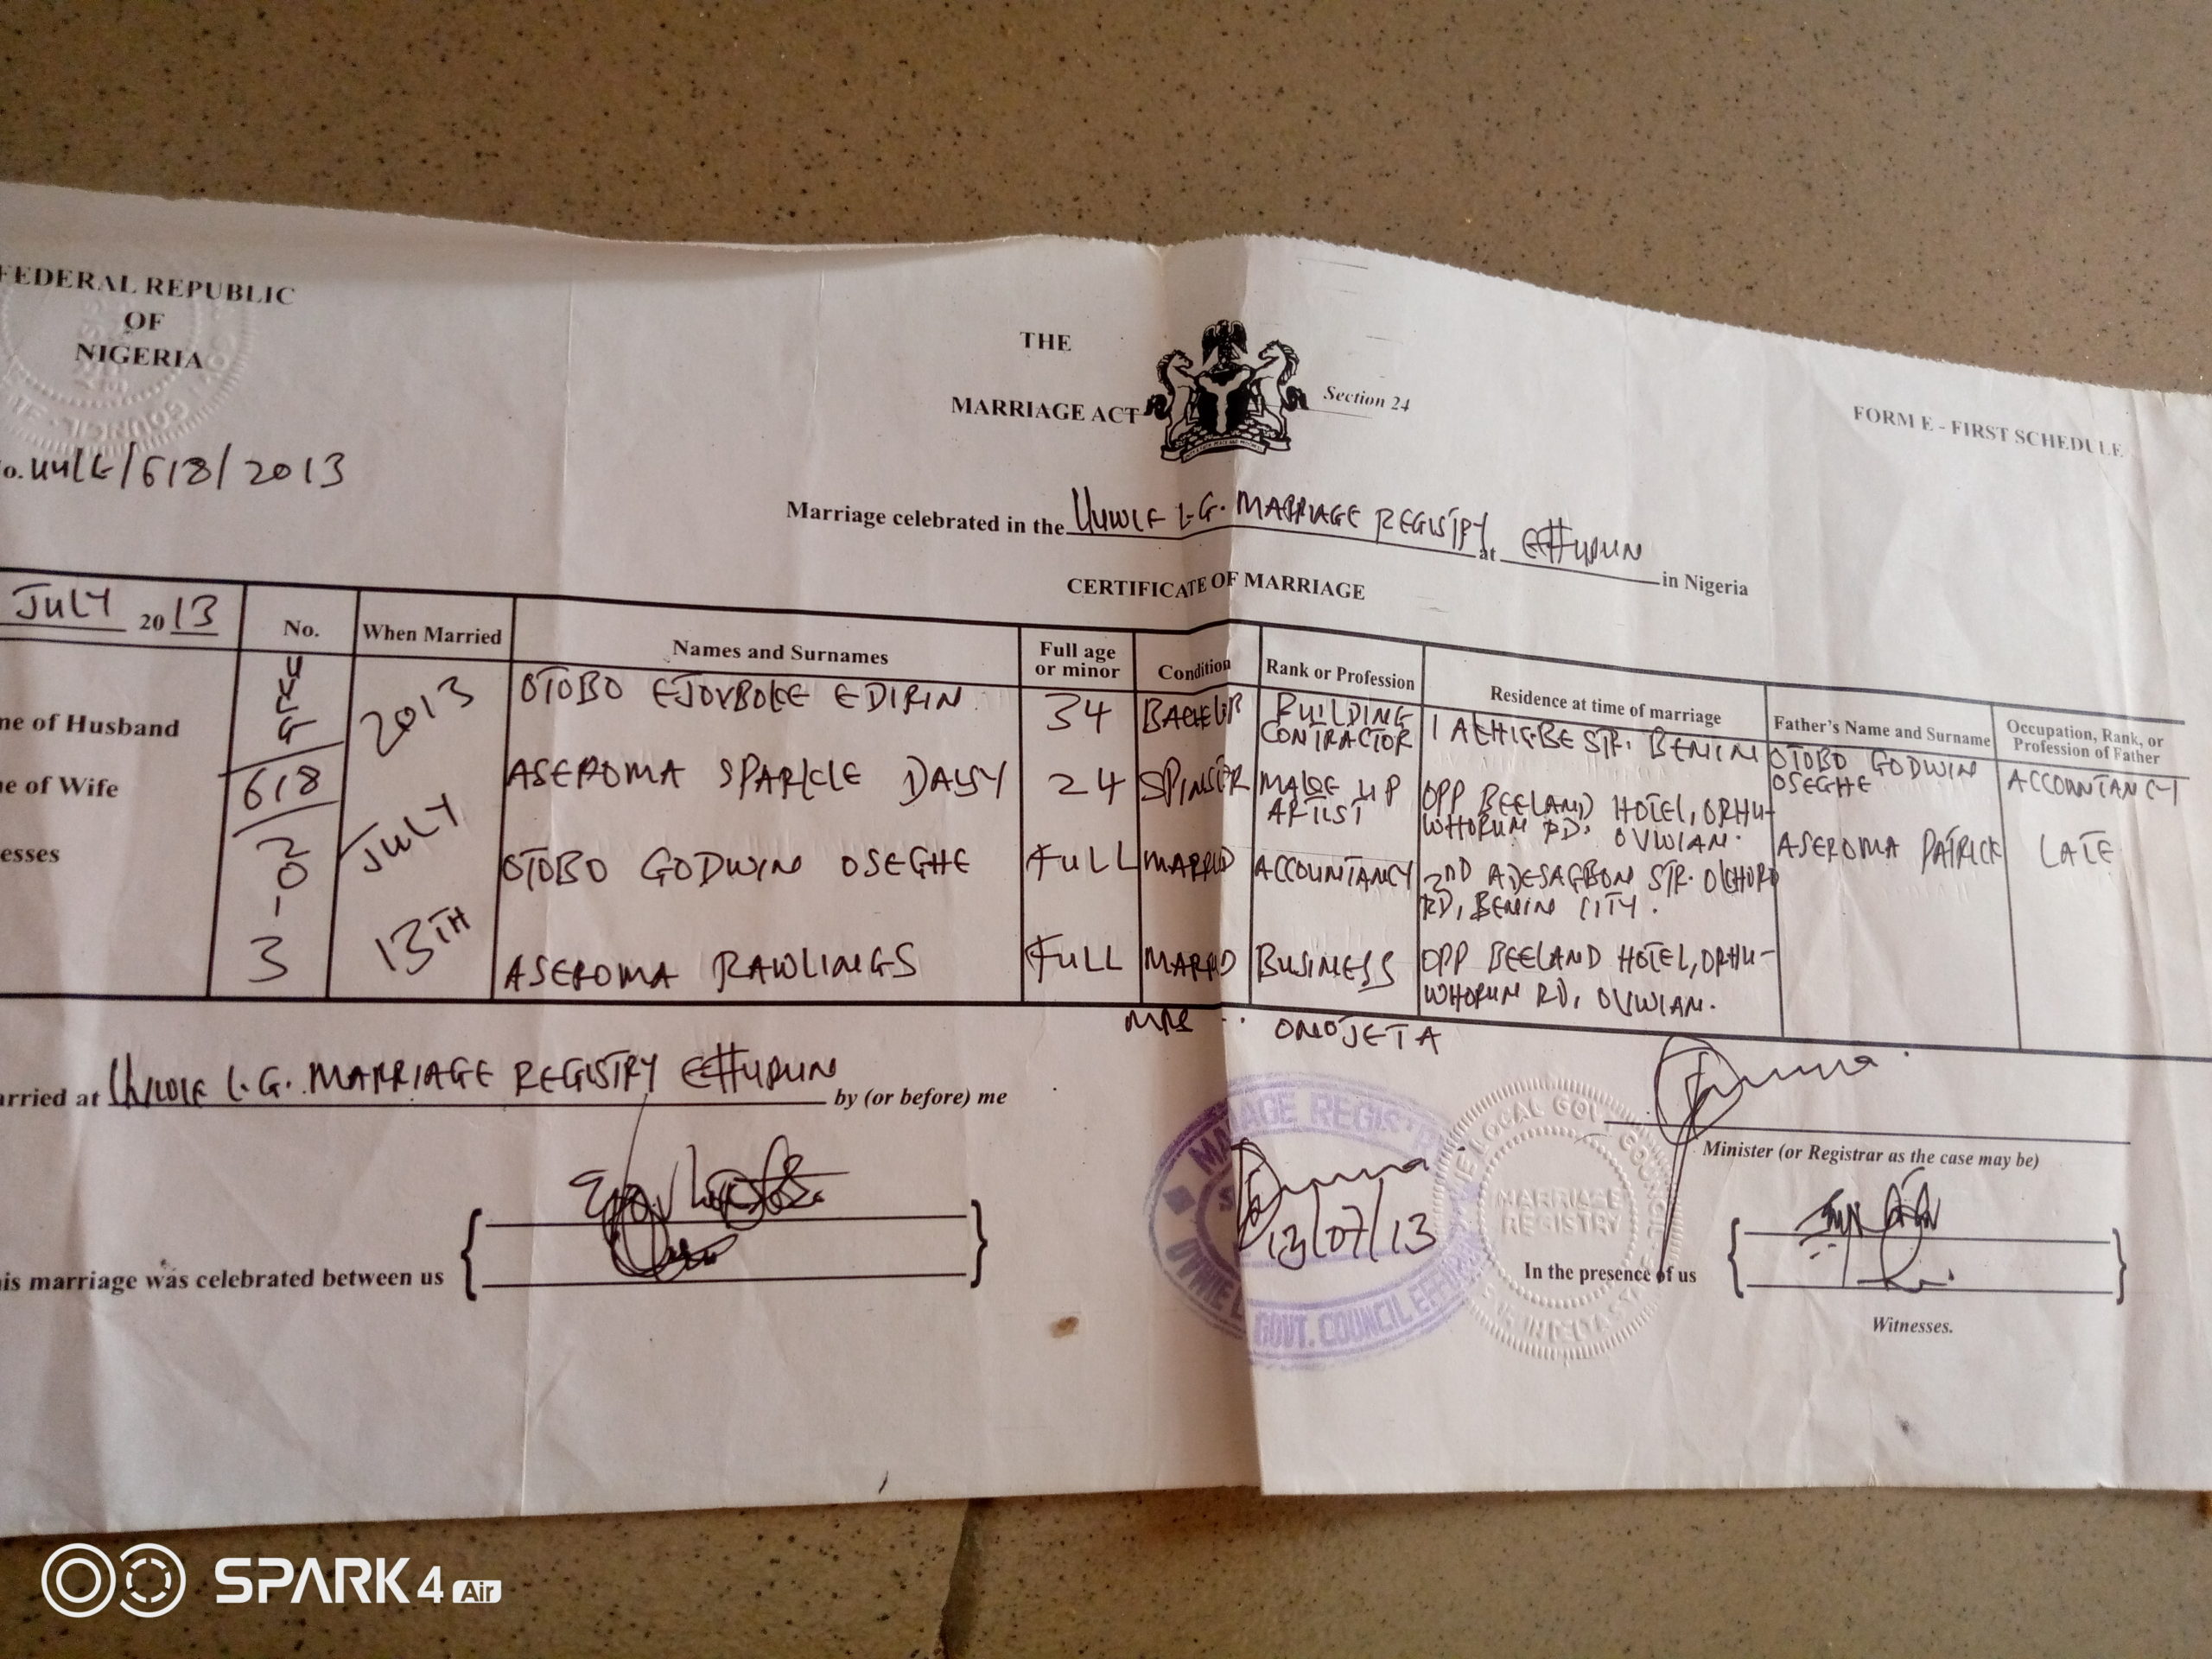 FEDERAL REPUBLIC
OF
NIGERIA
THE
MARRIAGE ACT
Section 24
FORM E - FIRST SCHEDULE
o. UULG/618/2013
Marriage celebrated in the UVWIE L.G. MARRIAGE REGISTRY at EFFURUN in Nigeria
CERTIFICATE OF MARRIAGE
JULY 2013
No.
When Married
Names and Surnames
Full age
or minor
Condition
Rank or Profession
Residence at time of marriage
Father's Name and Surname
Occupation, Rank, or
Profession of Father
me of Husband
OTOBO EJOVBOKE EDIRIN
34
BACHELOR
BUILDING
CONTRACTOR
1 AEHIGBE STR. BENIN
OTOBO GODWIN
OSEGHE
ACCOUNTANCY
ne of Wife
618
ASEROMA SPARKLE DAISY
24
SPINSTER
MAKE UP
ARTIST
OPP BEELAND HOTEL, ORHU-
WHORUN RD. OVWIAN.
ASEROMA PATRICK
LATE
esses
OTOBO GODWIN OSEGHE
FULL
MARRIED
ACCOUNTANCY
2ND ADESAGBON STR. OKHORO
RD, BENIN CITY.
ASEROMA RAWLINGS
FULL
MARRIED
BUSINESS
OPP BEELAND HOTEL, ORHU-
WHORUN RD, OVWIAN.
2
0
1
3
13TH
JULY
2013
MRS OMOJETA
arried at UVWIE L.G. MARRIAGE REGISTRY EFFURUN by (or before) me
Minister (or Registrar as the case may be)
MARRIAGE REGISTRY
13/07/13
GOVT. COUNCIL
LOCAL GOVT COUNCIL
MARRIAGE
REGISTRY
his marriage was celebrated between us
In the presence of us
Witnesses.
SPARK 4 Air